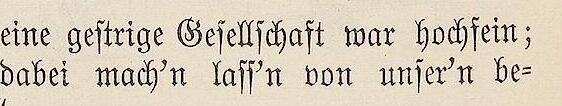 eine geſtrige Geſellſchaft war hochfein;
dabei mach'n laſſ'n von unſer'n be⸗